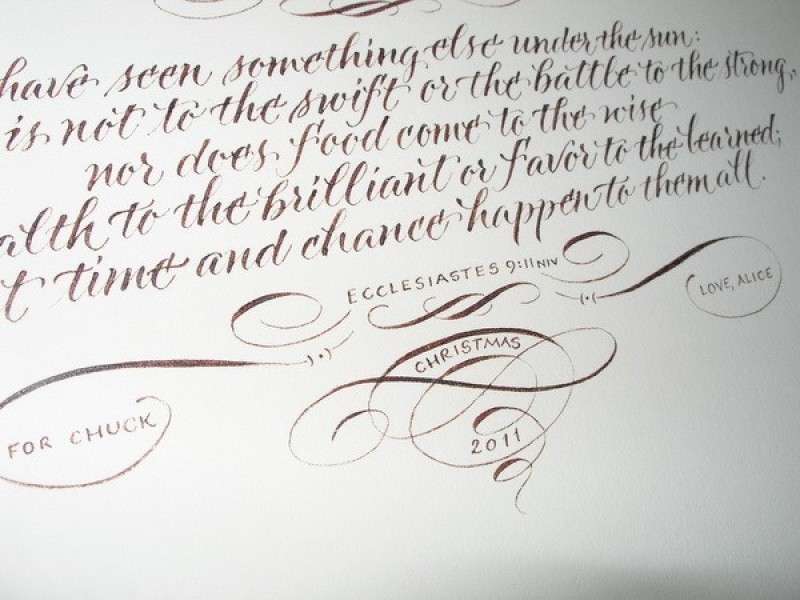 have seen something else under the sun:
is not to the swift or the battle to the strong,
nor does food come to the wise
alth to the brilliant or favor to the learned;
t time and chance happen to them all.
ECCLESIASTES 9:11 NIV
LOVE, ALICE
CHRISTMAS
FOR CHUCK
2011